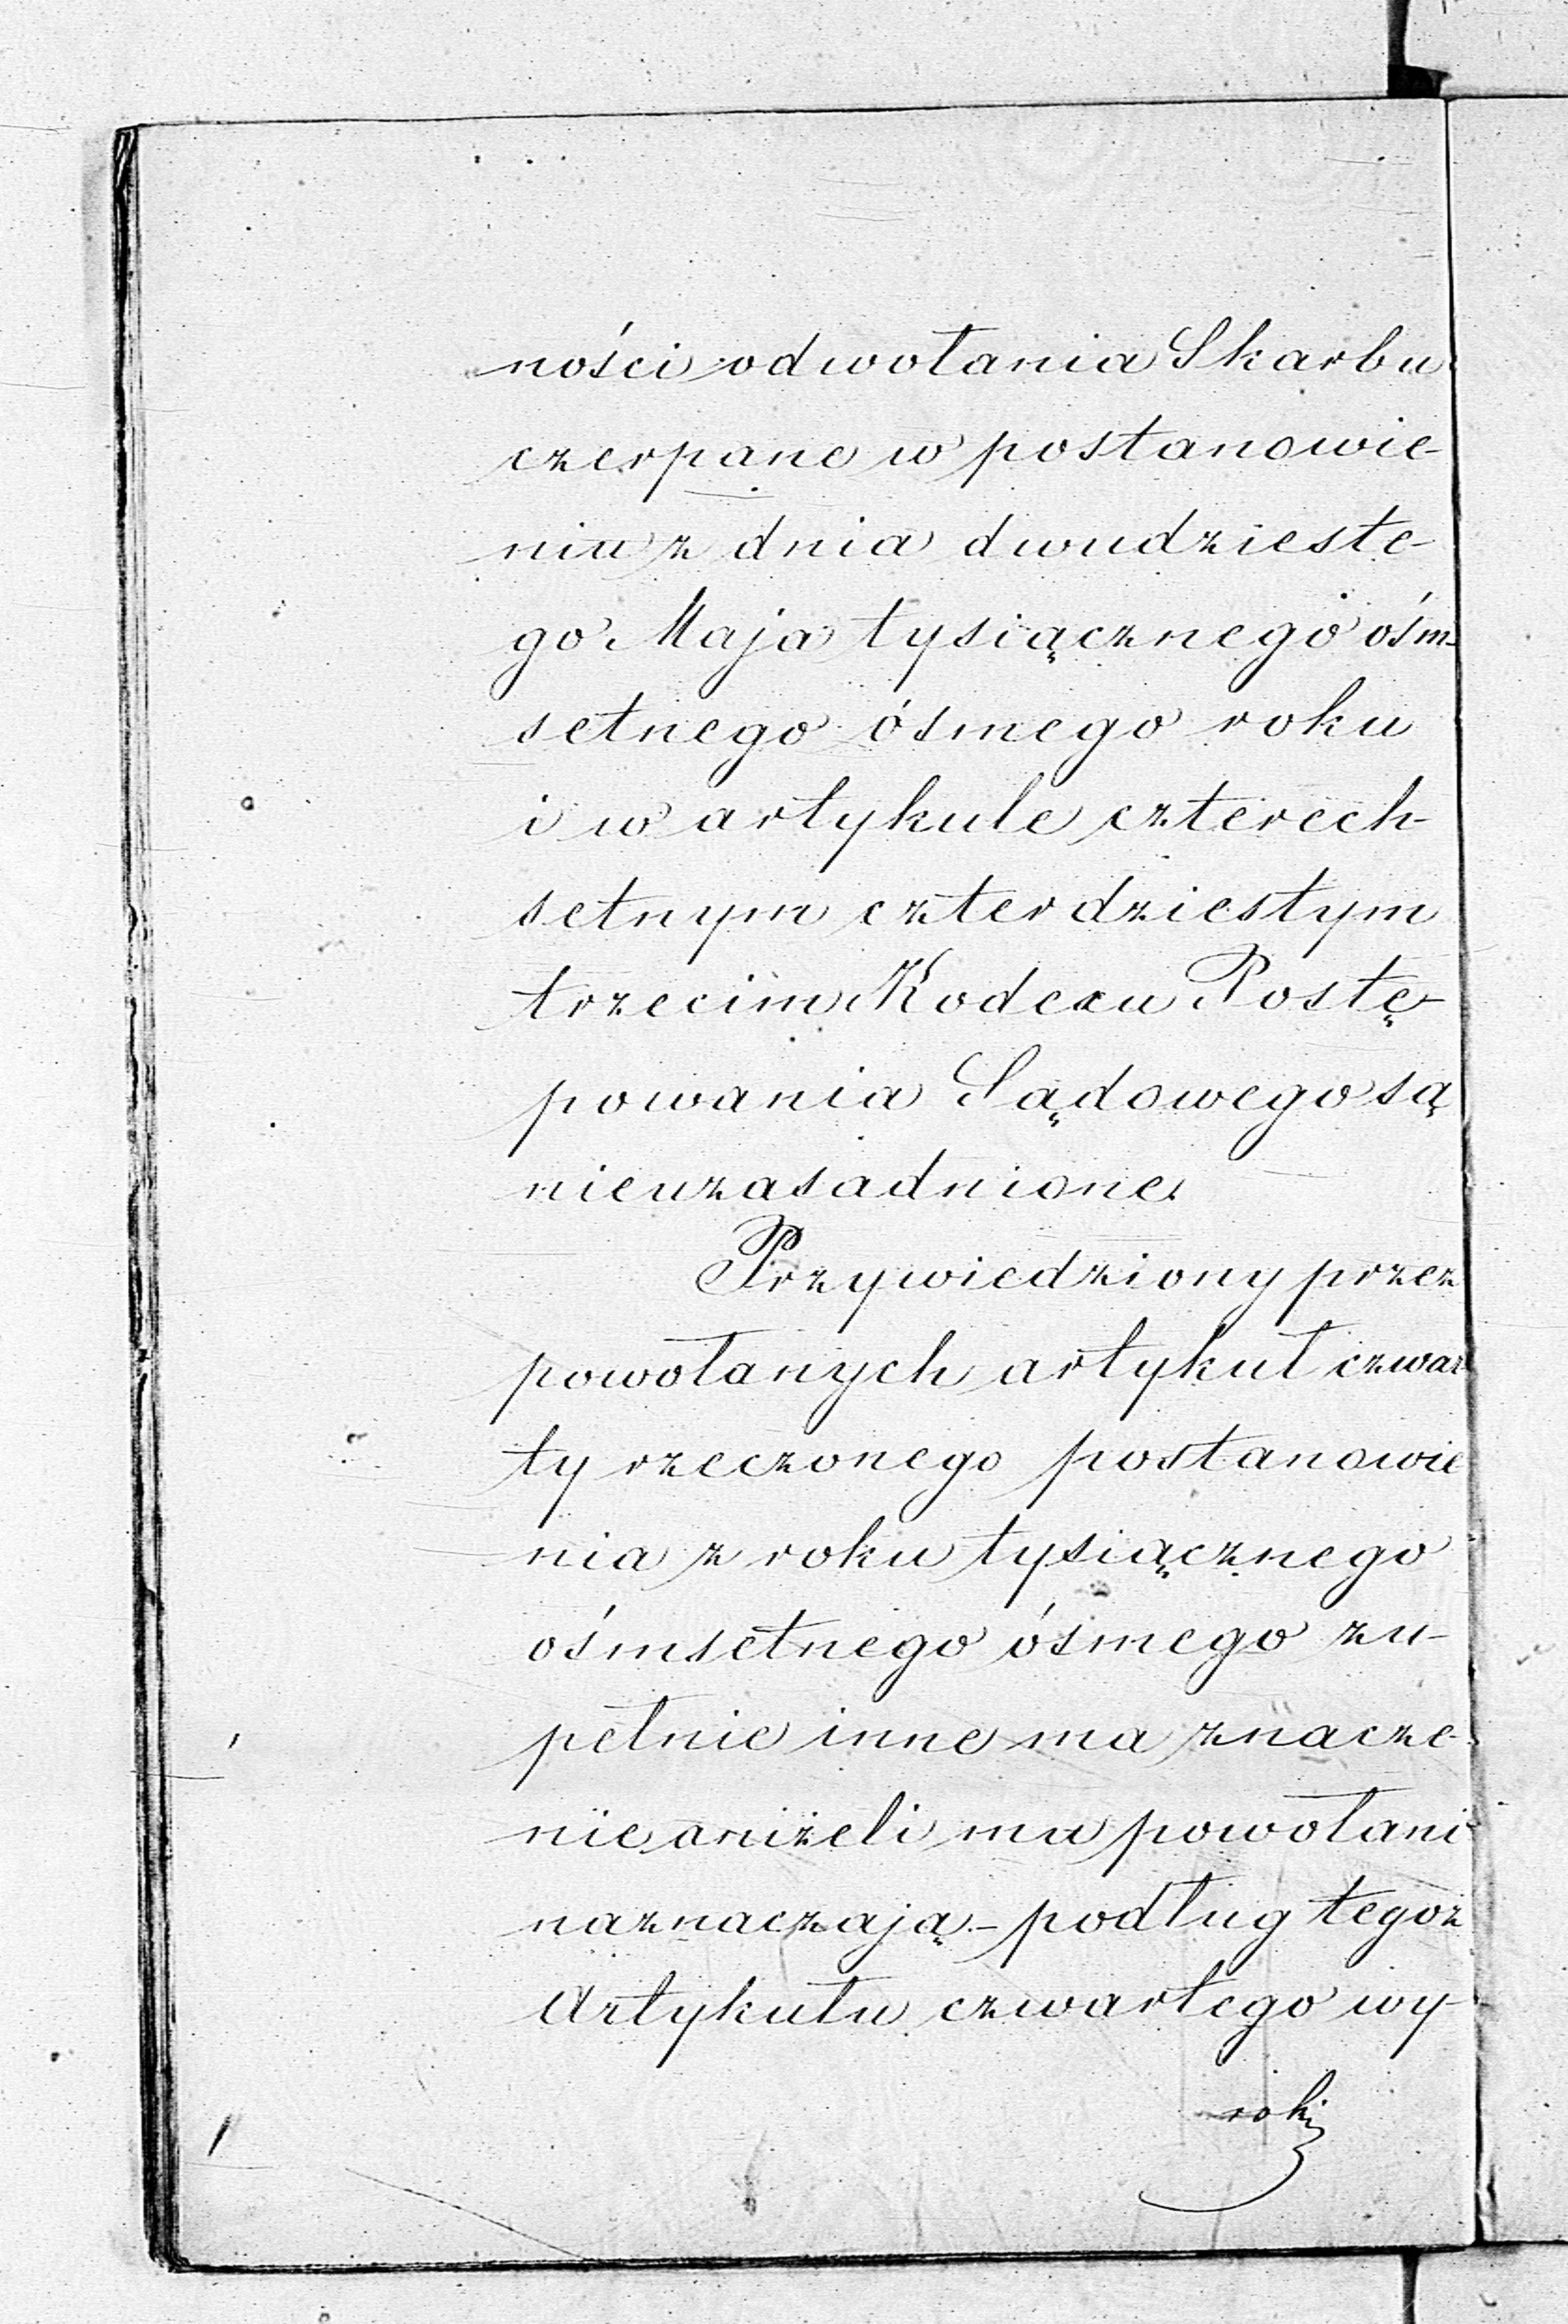 ności odwołania Skarbu
czerpane w postanowie-
niu z dnia dwudzieste-
go Maja tysiącznego ośm-
setnego ósmego roku
i w artykule czterech-
setnym czterdziestym
trzecim Kodexu Postę-
powania Sądowego są
nieuzasadnione.
Przywiedziony przez
powołanych artykuł czwar
ty rzeczonego postanowie
nia z roku tysiącznego
ośmsetnego ósmego zu-
pełnie inne ma znacze-
nie aniżeli mu powołani
naznaczają - podług tegoż
Artykułu czwartego wy-
roki